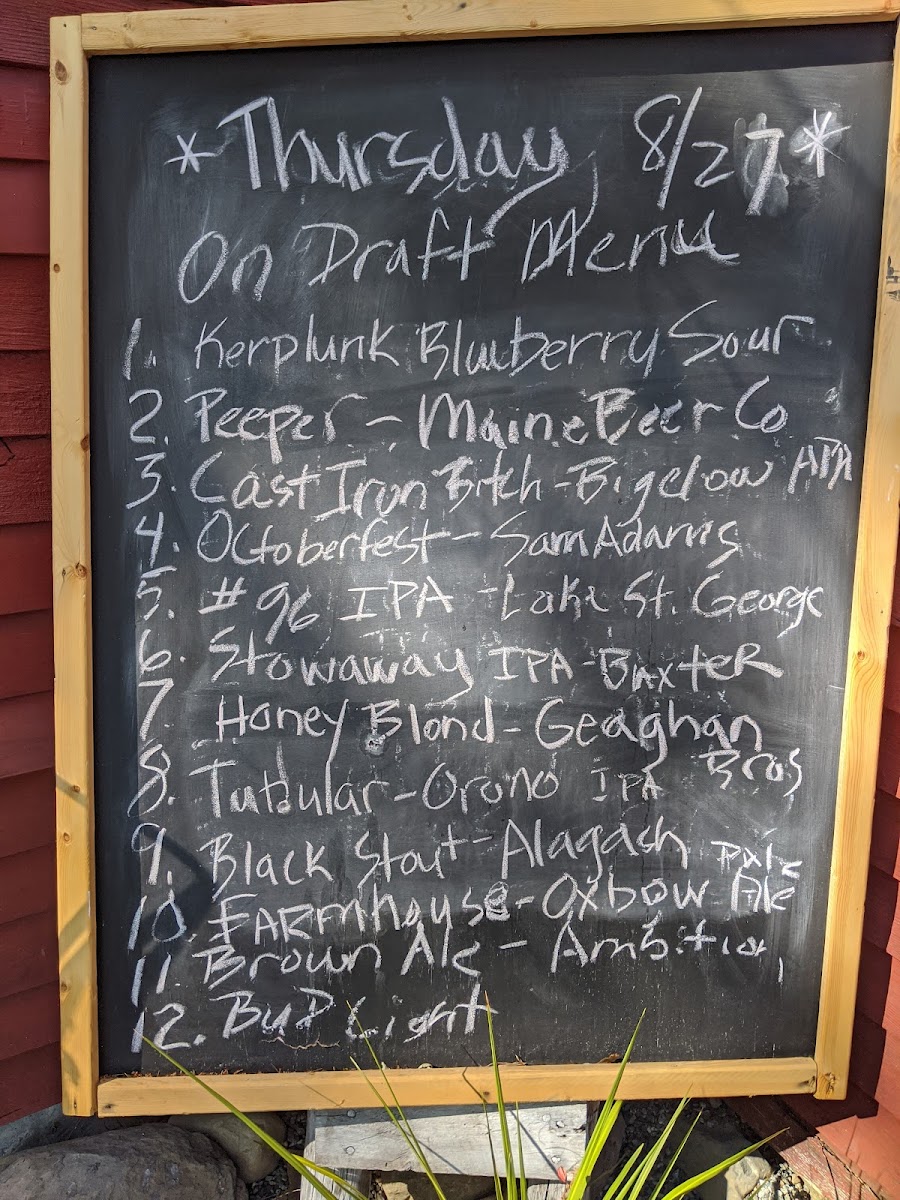 *Thursday, 8/27*
On Draft Menu
1. Kerplunk Blueberry Sour
2. Peeper - Maine Beer Co
3. Cast Iron Bitch - Bigelow APA
4. Octoberfest - Sam Adams
5. #96 IPA - Lake St. George
6. Stowaway IPA - Baxter
7. Honey Blond - Geaghan Bros
8. Tubular - Orono IPA
9. Black Stout - Alagash
10. Farmhouse - Oxbow Pale Ale
11. Brown Ale -
12. Bud Light